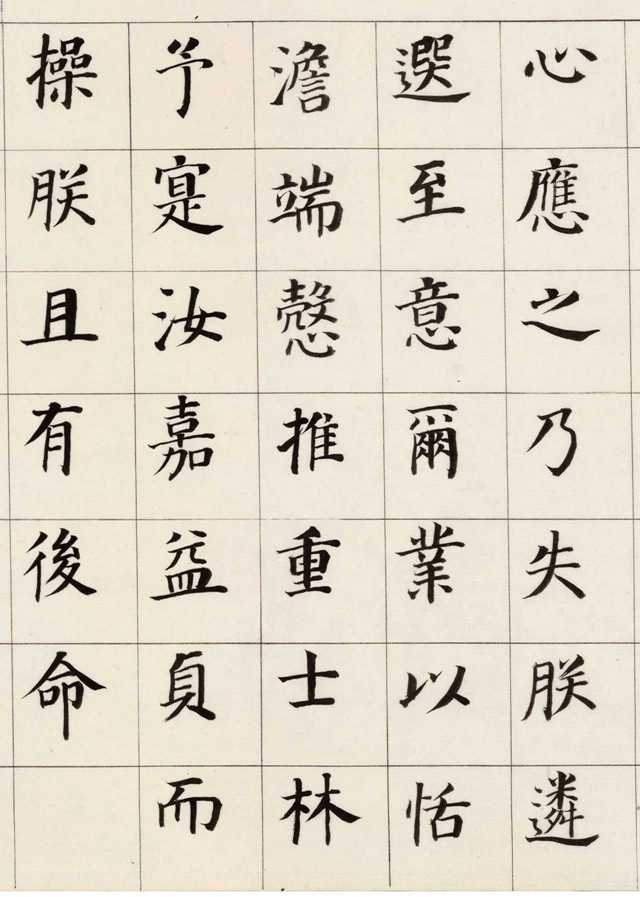 心應之乃失朕遴
選至意爾業以恬
澹端慤推重士林
予寔汝嘉益貞而
操朕且有後命